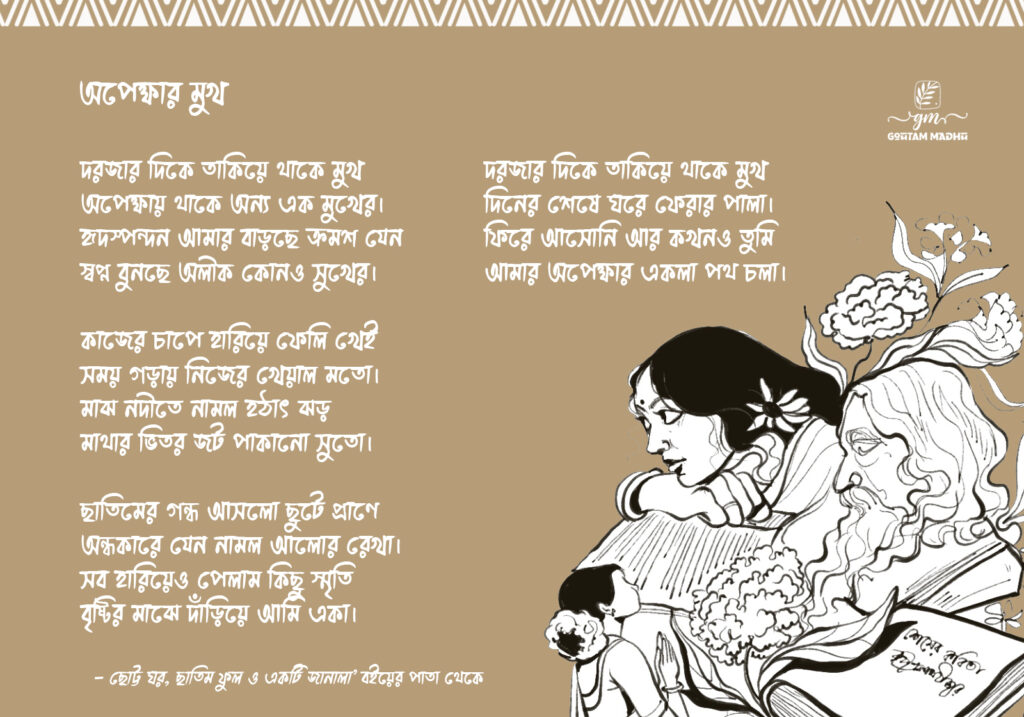 অপেক্ষার মুখ
gm
GOUTAM MADHU
দরজার দিকে তাকিয়ে থাকে মুখ
অপেক্ষায় থাকে অন্য এক মুখের।
হৃদস্পন্দন আমার বাড়ছে ক্রমশ যেন
স্বপ্ন বুনছে অলীক কোনও সুখের।
কাজের চাপে হারিয়ে ফেলি খেই
সময় গড়ায় নিজের খেয়াল মতো।
মাঝ নদীতে নামল হঠাৎ ঝড়
মাথার ভিতর জট পাকানো সুতো।
ছাতিমের গন্ধ আসলো ছুটে প্রাণে
অন্ধকারে যেন নামল আলোর রেখা।
সব হারিয়েও পেলাম কিছু স্মৃতি
বৃষ্টির মাঝে দাঁড়িয়ে আমি একা।
দরজার দিকে তাকিয়ে থাকে মুখ
দিনের শেষে ঘরে ফেরার পালা।
ফিরে আসোনি আর কখনও তুমি
আমার অপেক্ষার একলা পথ চলা।
– ছোট্ট ঘর, ছাতিম ফুল ও একটি জানালা’ বইয়ের পাতা থেকে
শেষের কবিতা